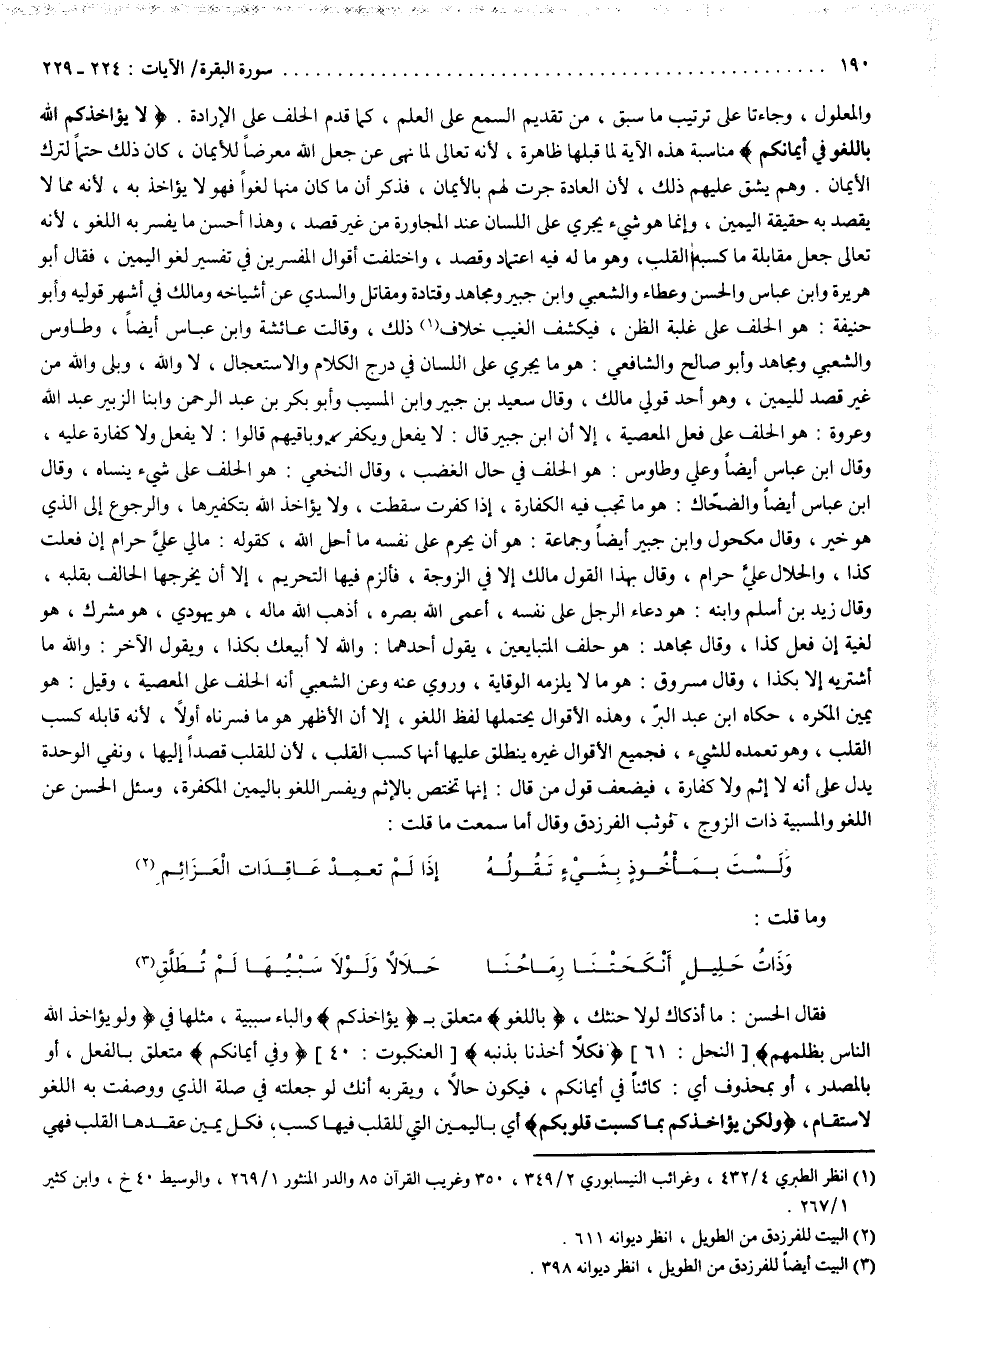 ١٩٠ ........................................ سورة البقرة/ الآيات : ٢٢٤ - ٢٢٩
والمعلول ، وجاءتا على ترتيب ما سبق ، من تقديم السمع على العلم ، كما قدم الحلف على الإرادة . ﴿ لا يؤاخذكم الله
باللغو في أيمانكم ﴾ مناسبة هذه الآية لما قبلها ظاهرة ، لأنه تعالى لما نهى عن جعل الله معرضاً للأيمان ، كان ذلك حتماً لترك
الأيمان . وهم يشق عليهم ذلك ، لأن العادة جرت لهم بالأيمان ، فذكر أن ما كان منها لغواً فهو لا يؤاخذ به ، لأنه مما لا
يقصد به حقيقة اليمين ، وإنما هو شيء يجري على اللسان عند المجاورة من غير قصد ، وهذا أحسن ما يفسر به اللغو ، لأنه
تعالى جعل مقابلة ما كسبه القلب، وهو ما له فيه اعتماد وقصد ، واختلفت أقوال المفسرين في تفسير لغو اليمين ، فقال أبو
هريرة وابن عباس والحسن وعطاء والشعبي وابن جبير ومجاهد وقتادة ومقاتل والسدي عن أشياخه ومالك في أشهر قوليه وأبو
حنيفة : هو الحلف على غلبة الظن ، فيكشف الغيب خلاف(١) ذلك ، وقالت عائشة وابن عباس أيضاً ، وطاوس
والشعبي ومجاهد وأبو صالح والشافعي : هو ما يجري على اللسان في درج الكلام والاستعجال ، لا والله ، وبلى والله من
غير قصد لليمين ، وهو أحد قولي مالك ، وقال سعيد بن جبير وابن المسيب وأبو بكر بن عبد الرحمن وابنا الزبير عبد الله
وعروة : هو الحلف على فعل المعصية ، إلا أن ابن جبير قال : لا يفعل ويكفر ، وباقيهم قالوا : لا يفعل ولا كفارة عليه ،
وقال ابن عباس أيضاً وعلي وطاوس : هو الحلف في حال الغضب ، وقال النخعي : هو الحلف على شيء ينساه ، وقال
ابن عباس أيضاً والضحّاك : هو ما تجب فيه الكفارة ، إذا كفرت سقطت ، ولا يؤاخذ الله بتكفيرها ، والرجوع إلى الذي
هو خير ، وقال مكحول وابن جبير أيضاً وجماعة : هو أن يحرم على نفسه ما أحل الله ، كقوله : مالي عليَّ حرام إن فعلت
كذا ، والحلال عليَّ حرام ، وقال بهذا القول مالك إلا في الزوجة ، فألزم فيها التحريم ، إلا أن يخرجها الحالف بقلبه ،
وقال زيد بن أسلم وابنه : هو دعاء الرجل على نفسه ، أعمى الله بصره ، أذهب الله ماله ، هو يهودي ، هو مشرك ، هو
لغية إن فعل كذا ، وقال مجاهد : هو حلف المتبايعين ، يقول أحدهما : والله لا أبيعك بكذا ، ويقول الآخر : والله ما
أشتريه إلا بكذا ، وقال مسروق : هو ما لا يلزمه الوقاية ، وروي عنه وعن الشعبي أنه الحلف على المعصية ، وقيل : هو
يمين المكره ، حكاه ابن عبد البرّ ، وهذه الأقوال يحتملها لفظ اللغو ، إلا أن الأظهر هو ما فسرناه أولاً ، لأنه قابله كسب
القلب ، وهو تعمده للشيء ، فجميع الأقوال غيره ينطلق عليها أنها كسب القلب ، لأن للقلب قصداً إليها ، ونفي الوحدة
يدل على أنه لا إثم ولا كفارة ، فيضعف قول من قال : إنها تختص بالإثم ويفسر اللغو باليمين المكفرة، وسئل الحسن عن
اللغو والمسبية ذات الزوج ، فوثب الفرزدق وقال أما سمعت ما قلت :
وَلَسْتَ بِمَأْخُوذٍ بِشَيْءٍ تَقُولُهُ    إِذَا لَمْ تعمِدْ عَاقِدَات الْعَزَائِمِ (٢)
وما قلت :
وَذَاتُ حَلِيلٍ أَنْكَحَتْنَا رِمَاحُنَا    حَلَالًا وَلَوْلَا سَبْيُهَا لَمْ تُطَلَّقِ(٣)
فقال الحسن : ما أذكاك لولا حنثك ، ﴿ باللغو ﴾ متعلق بـ ﴿ يؤاخذكم ﴾ والباء سببية ، مثلها في ﴿ ولو يؤاخذ الله
الناس بظلمهم﴾ [ النحل : ٦١ ] ﴿ فكلًا أخذنا بذنبه ﴾ [ العنكبوت : ٤٠ ] ﴿ وفي أيمانكم ﴾ متعلق بالفعل ، أو
بالمصدر ، أو بمحذوف أي : كائناً في أيمانكم ، فيكون حالًا ، ويقربه أنك لو جعلته في صلة الذي ووصفت به اللغو
لاستقام ، ﴿ولكن يؤاخذكم بما كسبت قلوبكم﴾ أي باليمين التي للقلب فيها كسب، فكل يمين عقدها القلب فهي
(١) انظر الطبري ٤٣٢/٤ ، وغرائب النيسابوري ٣٤٩/٢ ، ٣٥٠ وغريب القرآن ٨٥ والدر المنثور ٢٦٩/١ ، والوسيط ٤٠ خ ، وابن كثير
٢٦٧/١ .
(٢) البيت للفرزدق من الطويل ، انظر ديوانه ٦١١ .
(٣) البيت أيضاً للفرزدق من الطويل ، انظر ديوانه ٣٩٨ .